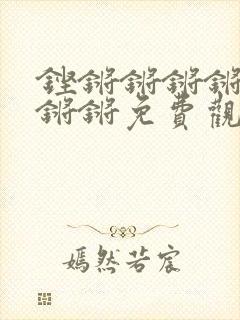 铿锵锵锵锵
锵锵免費觀
嫣然若宸